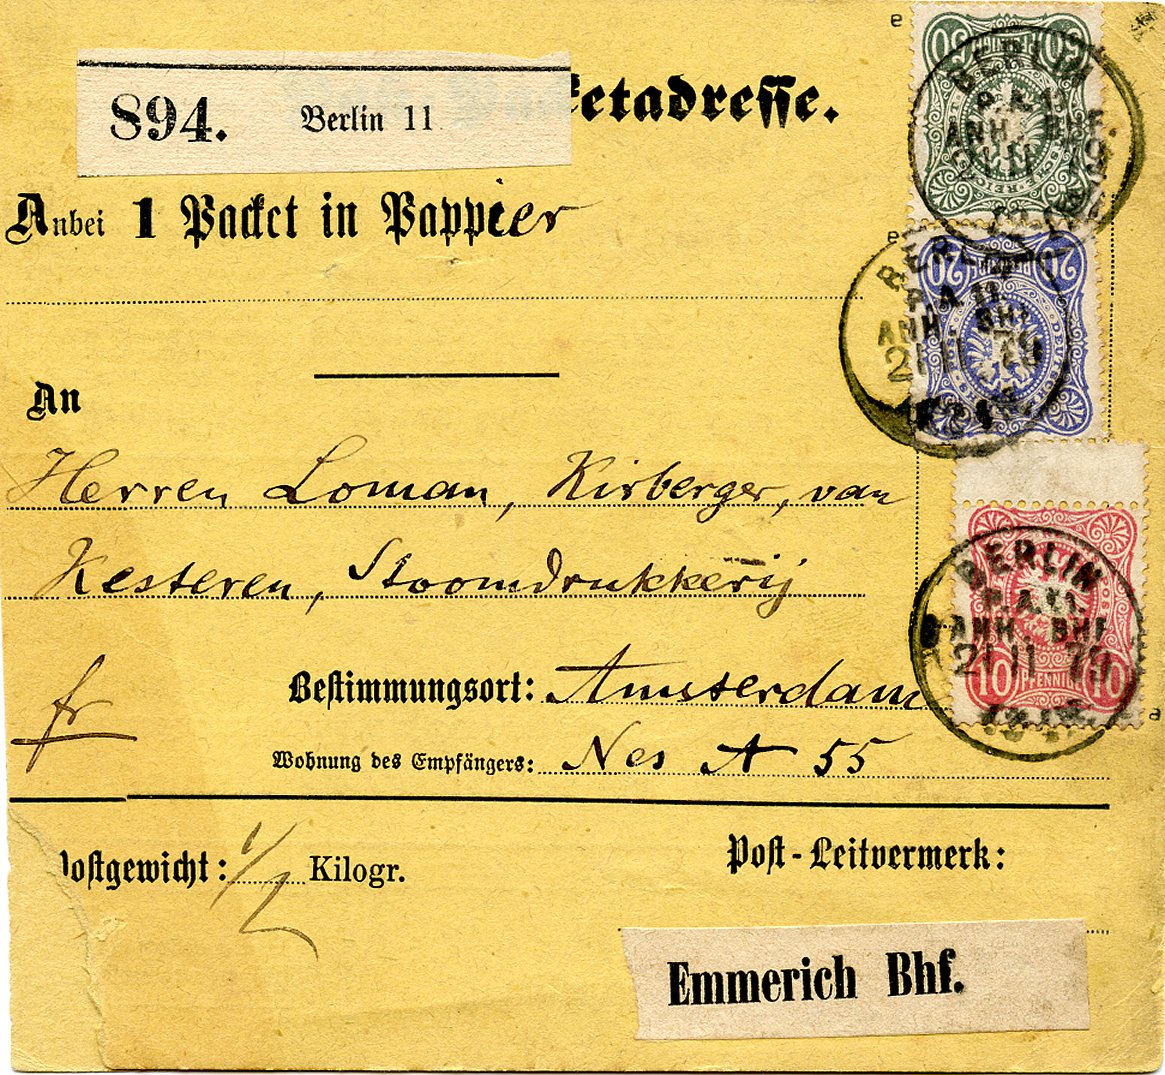 894. Berlin 11
etadresse.
Anbei 1 Packet in Pappier
An
Herren Loman, Kirberger, van
Kesteren, Stoomdrukkerij
fr
Bestimmungsort: Amsterdam
Wohnung des Empfängers: Nes A 55
ostgewicht: 1/2 Kilogr.
Post-Leitvermerk:
Emmerich Bhf.
e
50 PFENNIG 50
BERLIN
P.A.11.
ANH. BHF.
79
e
20 20
BERLIN
P.A.11.
ANH. BHF.
21 11 79
BERLIN
P.A.11.
ANH. BHF.
21 11 79
10 PFENNIG 10
a